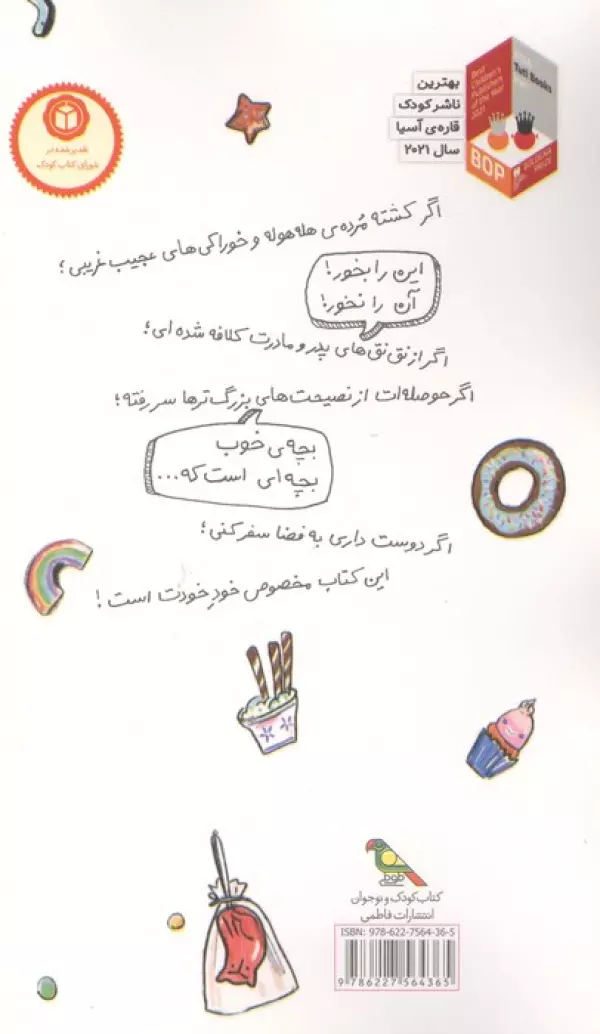 بهترین
ناشر کودک
قاره‌ی آسیا
سال ۲۰۲۱
Best
Children's
Publishers
of the Year
2021
Tuti Books
BOP
BOLOGNA
PRIZE
تقدیر شده در
شورای کتاب کودک
اگر کشته مُرده‌ی هله‌هوله و خوراکی‌های عجیب غریبی؛
این را بخور!
آن را نخور!
اگر از نق‌نق‌های پدر و مادرت کلافه شده‌ای؛
اگر حوصله‌ات از نصیحت‌های بزرگ‌ترها سر رفته؛
بچه‌ی خوب
بچه‌ای است که...
اگر دوست داری به فضا سفر کنی؛
این کتاب مخصوص خودِ خودت است!
کتاب کودک و نوجوان
انتشارات فاطمی
ISBN: 978-622-7564-36-5
9 786227 564365